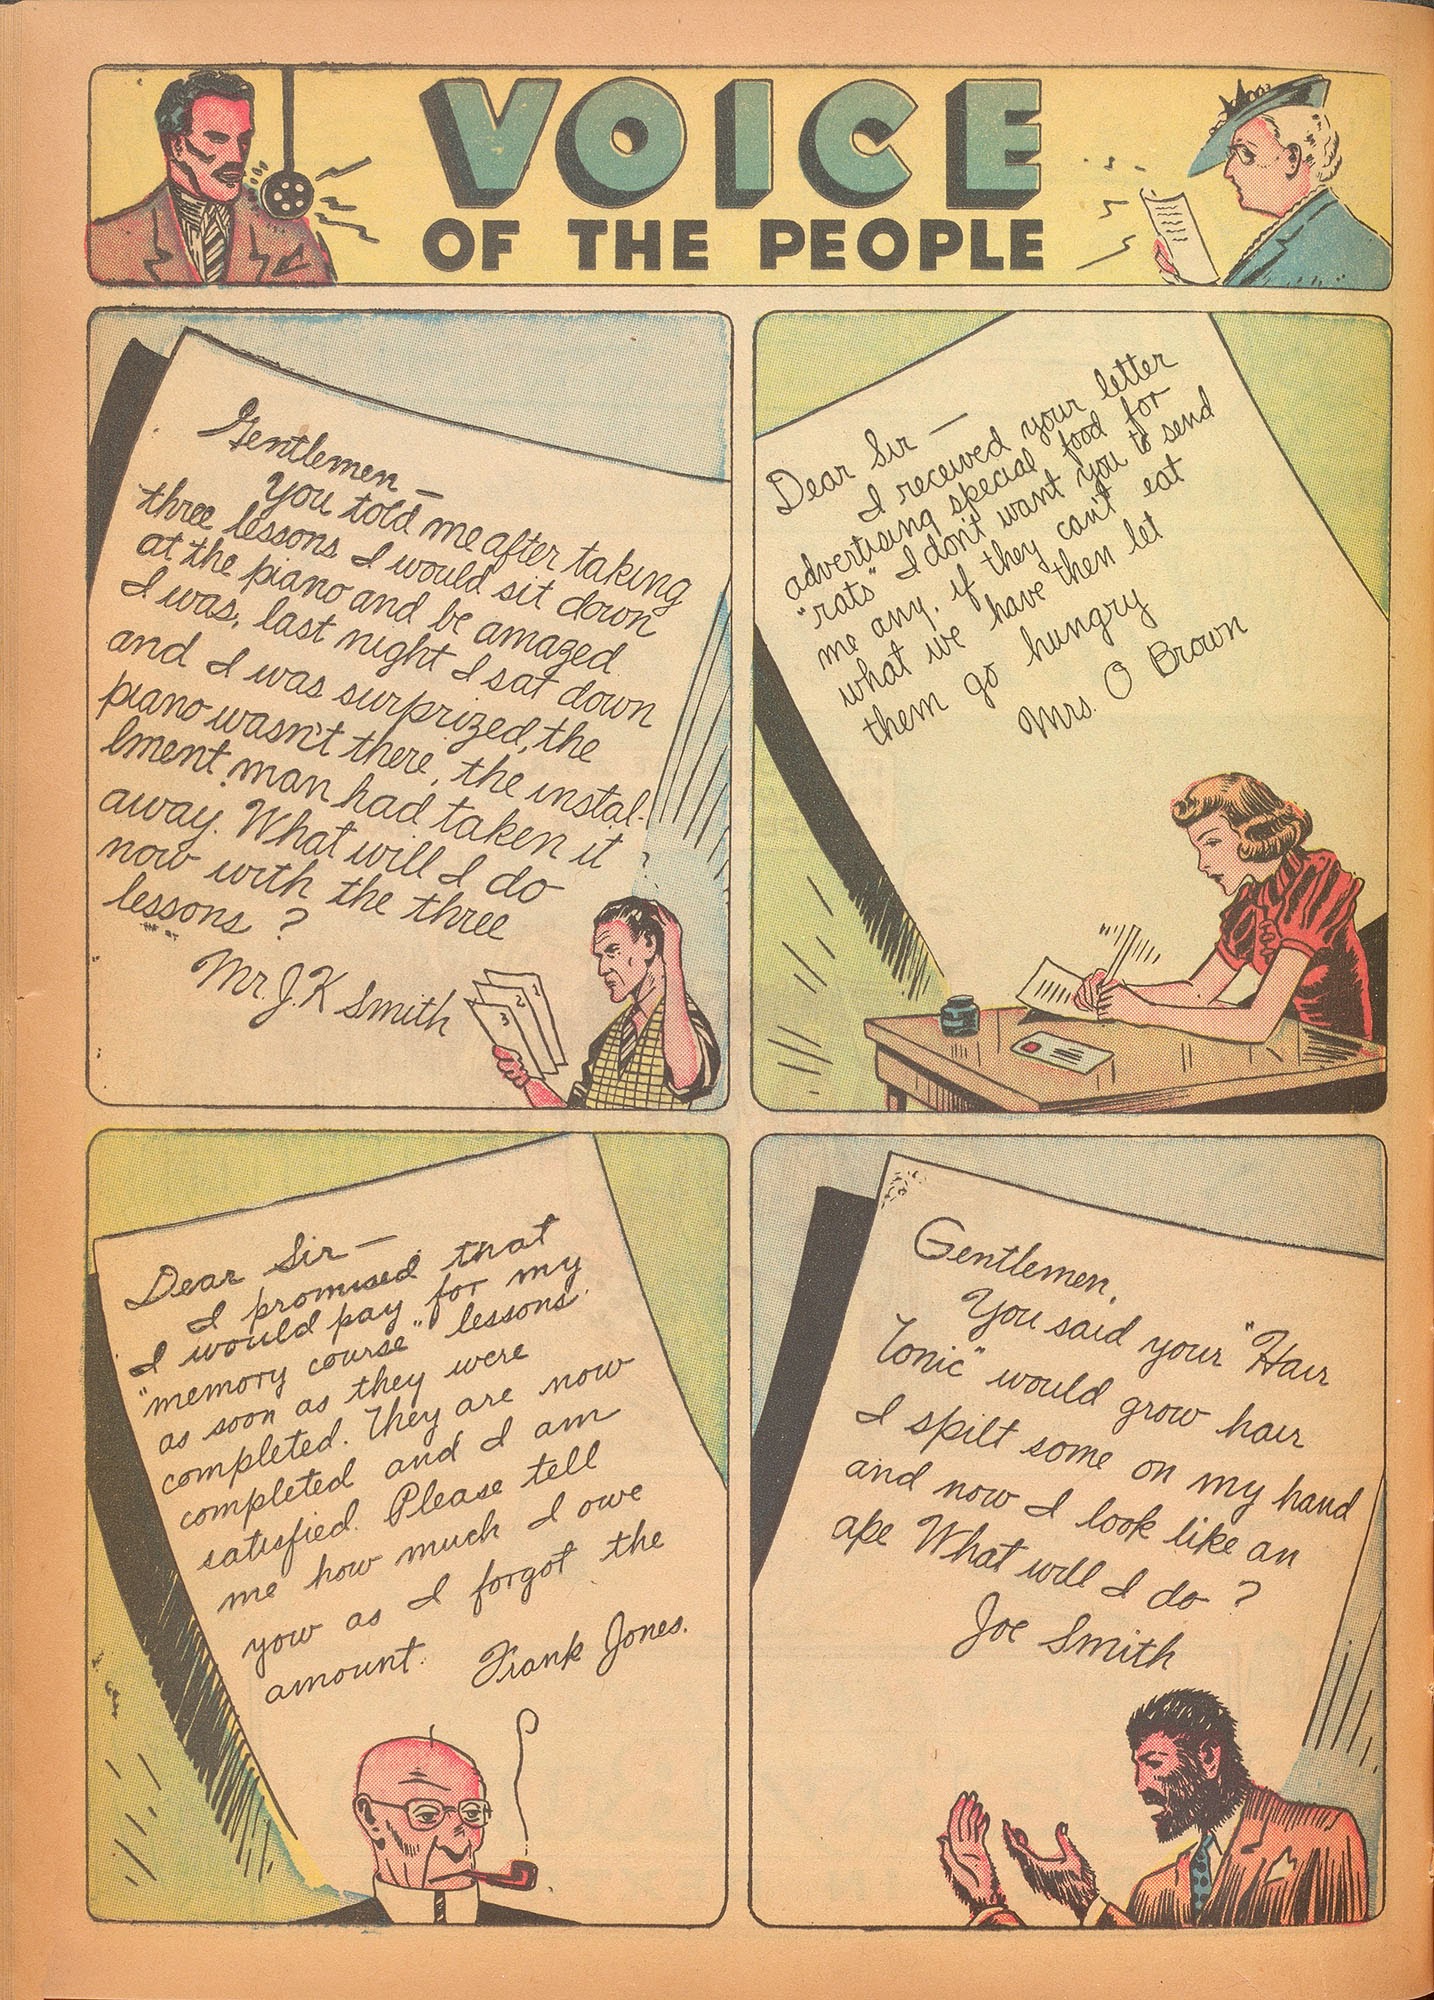 VOICE
OF THE PEOPLE
Gentlemen —
You told me after taking
three lessons I would sit down
at the piano and be amazed
I was, last night I sat down
and I was surprized, the
piano wasn't there, the instal-
lment man had taken it
away. What will I do
now with the three
lessons ?
Mr. J. K Smith
1
2
3
?
Dear Sir —
I received your letter
advertising special food for
"rats" I don't want you to send
me any, if they can't eat
what we have then let
them go hungry
Mrs. O Brown
Dear Sir —
I promised that
I would pay for my
"memory course" lessons
as soon as they were
completed. They are now
completed and I am
satisfied. Please tell
me how much I owe
yow as I forgot the
amount. Frank Jones.
Gentlemen,
You said your "Hair
Tonic" would grow hair
I spilt some on my hand
and now I look like an
ape What will I do ?
Joe Smith